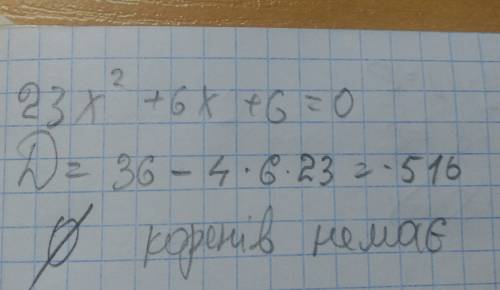 23x² + 6x + 6 = 0
D = 36 - 4 · 6 · 23 = -516
∅ коренів немає